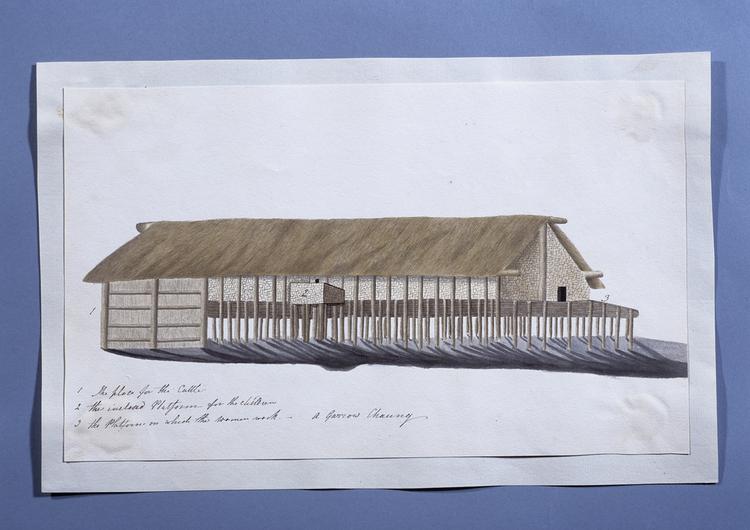 1
2
3
1 The place for the Cattle
2 the inclosed Platform for the children
3 the Platform on which the women work - a Garrow Chaung